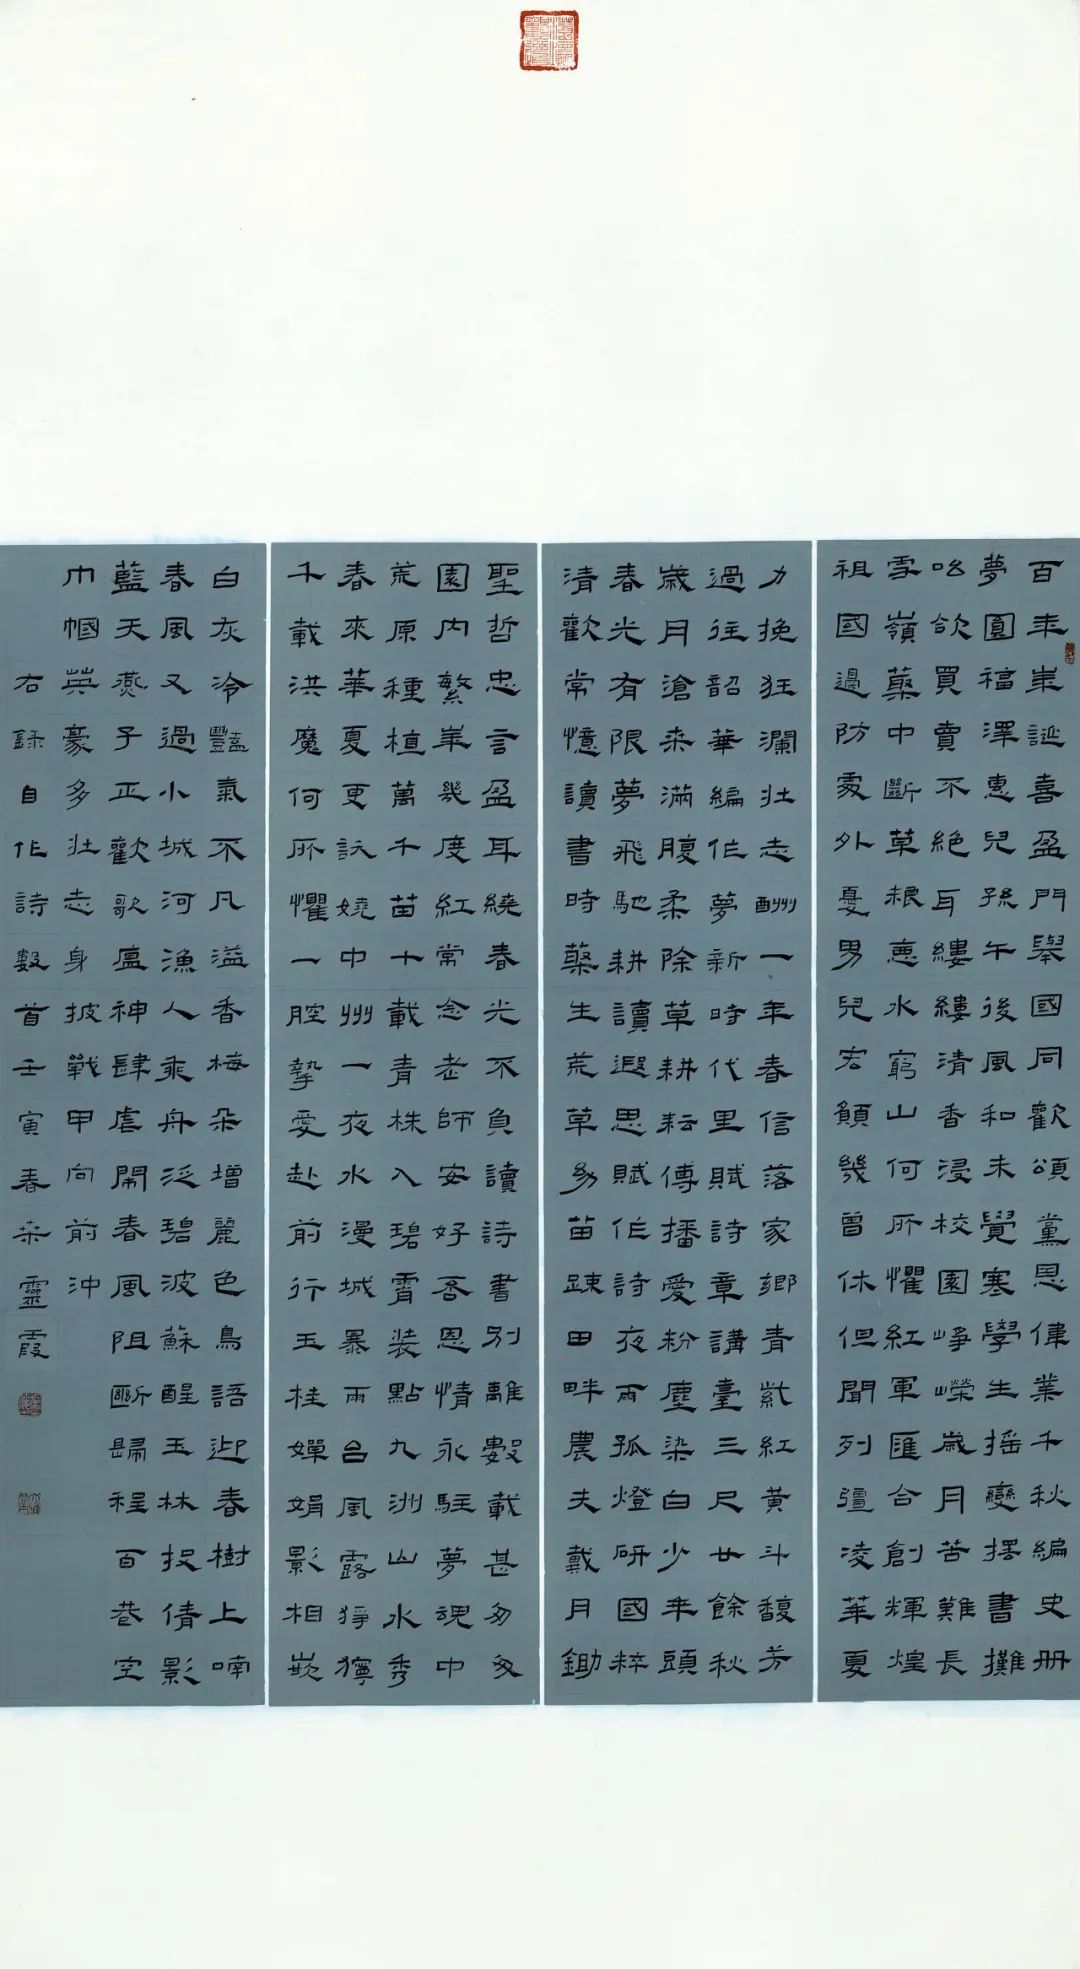 百年華誕喜盈門舉國同歡頌黨恩偉業千秋編史册
夢圓福澤惠兒孫午後風和未覺寒學生搖變擺書攤
吆欲買賣不絕耳縷縷清香浸校園崢嶸歲月苦難長
雪嶺藥中斷草根憲水窮山何所懼紅軍匯合創輝煌
祖國邊防處外憂男兒宏願幾曾休但聞列彊凌華夏
力挽狂瀾壯志酬一年春信落家鄉青紫紅黃斗馥芳
過往韶華編作夢新時代里賦詩章講臺三尺廿餘秋
歲月滄来滿腹柔除草耕耘傳播愛粉塵染白少年頭
春光有限夢飛馳耕讀遐思賦作詩夜雨孤燈研國粹
清歡常憶讀書時蘂生荒草幼苗踈田畔農夫戴月鋤
聖哲忠言盈耳繞春光不負讀詩書别離數載甚匆匆
園内繁華幾度紅常念老師安好否恩情永駐夢魂中
荒原種植萬千苗十載青株入碧霄装點九洲山水秀
春來華夏更訞嬈中州一夜水漫城暴雨台風露猙獰
千載洪魔何所懼一腔摯愛赴前行玉桂嬋娟影相嵌
白灰冷豔氣不凡溢香梅朵增麗色鳥語迎春樹上喃
春風又過小城河漁人乘舟泛碧波蘇醒玉林投倩影
藍天燕子正歡歌瘟神肆虐鬧春風阻斷歸程百巷空
巾幗英豪多壮志身披戰甲向前沖
右録自作詩數首壬寅春朵靈霞